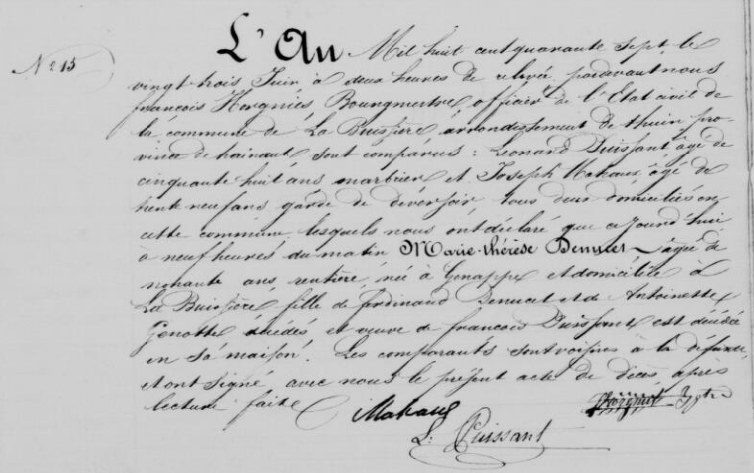 N° 15
L'An Mil huit cent quarante sept, le
vingt trois Juin à deux heures de relevée, pardevant nous
françois Horgnies, Bourgmestre, officier de l'État civil de
la commune de La Buissière, arrondissement de thuin, pro-
vince de hainaut sont comparus : Léonard Puissant âgé de
cinquante huit ans marbrier et Joseph Mahaux âgé de
trente neuf ans garde de déversoir, tous deux domiciliés en
cette commune, lesquels nous ont déclaré que ce Jourd'hui
à neuf heures du matin Marie-thérèse Denucet âgée de
nonante ans, rentière, née à Genappe et domiciliée à
La Buissière, fille de ferdinand Denucet et de Antoinette
Genotte décédés, et veuve de françois Puissant est décédée
en sa maison. Les comparants sont voisins à la défunte,
et ont signé avec nous le présent acte de décès, après
lecture faite
Mahaux
L. Puissant